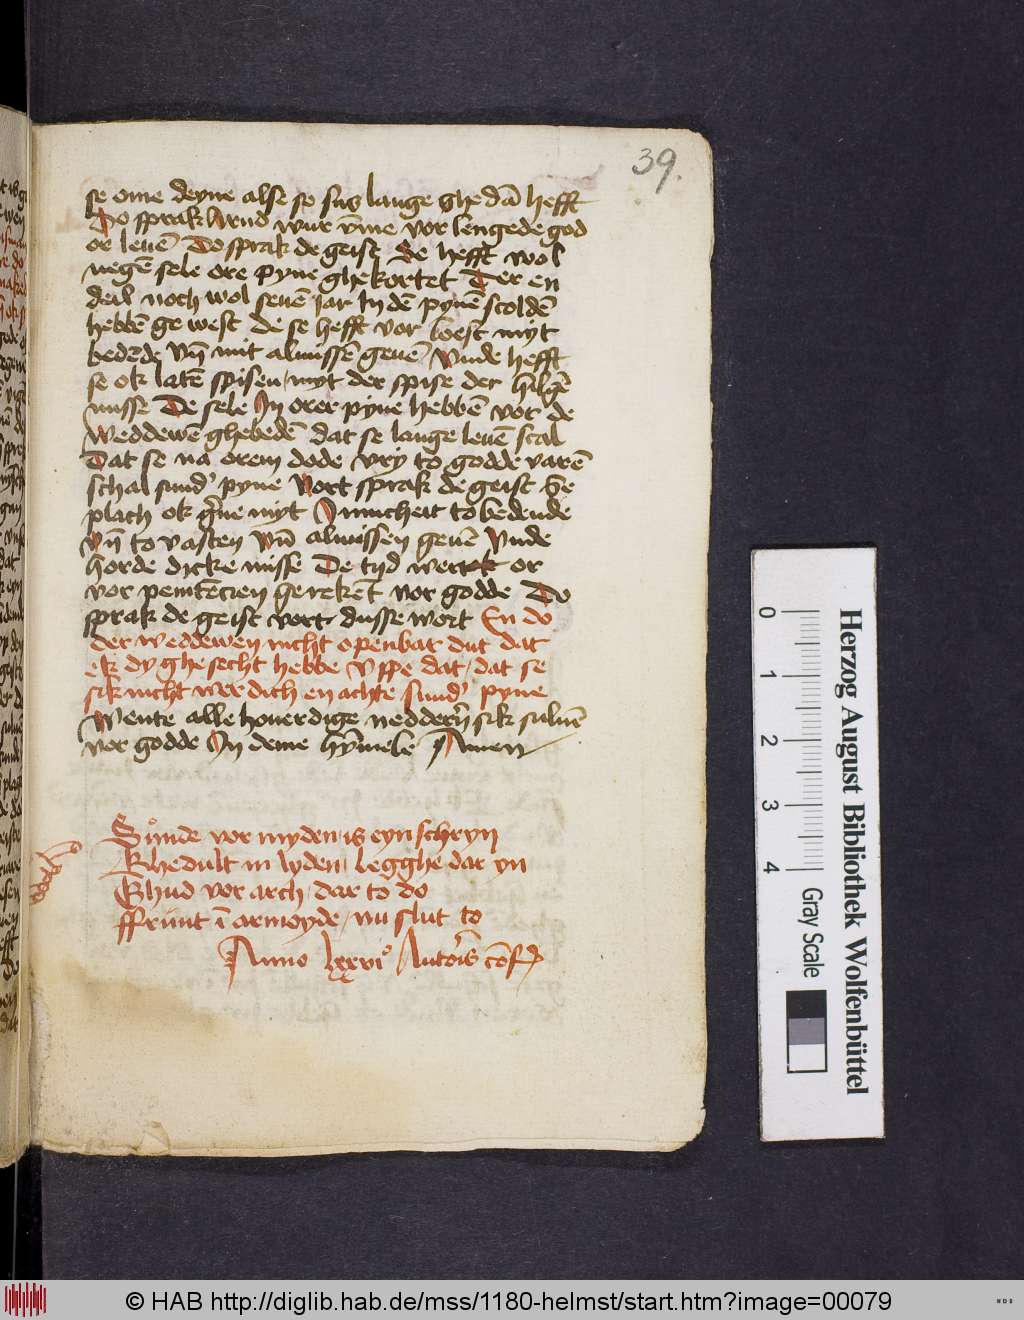 39.
se ome deyne alse se sus lange ghe dā hefft
Do sprak Arnd wur v̄me vor lengede god
or leuē Do sprak de geist Se hefft wol
negē sele ore pyne ghekortet Der en
deil noch wol seuē jar In dē pynē scoldē
hebbē ge west de se hefft vor loest myt
bedede vn̄ mit almissē geuē / Vnde hefft
se ok latē spisen / myt der spise der hilgē
misse De sele In orer pyne hebbē vor de
weddewē ghebedē dat se lange leuē scal
Dat se na orem dode vry to godde varē
schal sund' pyne Vort sprak de geist Se
plach ok g'ne myt Innicheit to bedende
vn̄ to vasten vn̄ almissen geuē Vnde
horde dycke misse De tijd wert or
vor penitēcien ge rekēt vor godde Do
sprak de geist vort dusse wort En do
der weddewen nicht openbar dut dat
ek dy ghesecht hebbe Vppe dat / dat se
sik nicht wer dich en achte sund' pyne
Wente alle houerdige neddern sik suluē
vor godde In deme hȳmele Amen
Sůnde vor myden / is eyn schryn
Khedult in lyden / legghe dar yn
Ghud vor arch / dar to do
ffrünt ī armoyde / nu slut to
Anno lxxvi°
Herzog August Bibliothek Wolfenbüttel
0 1 2 3 4 Gray Scale
© HAB http://diglib.hab.de/mss/1180-helmst/start.htm?image=00079